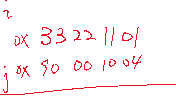 2
0x 33 22 11 01
j 0x 50 00 10 04